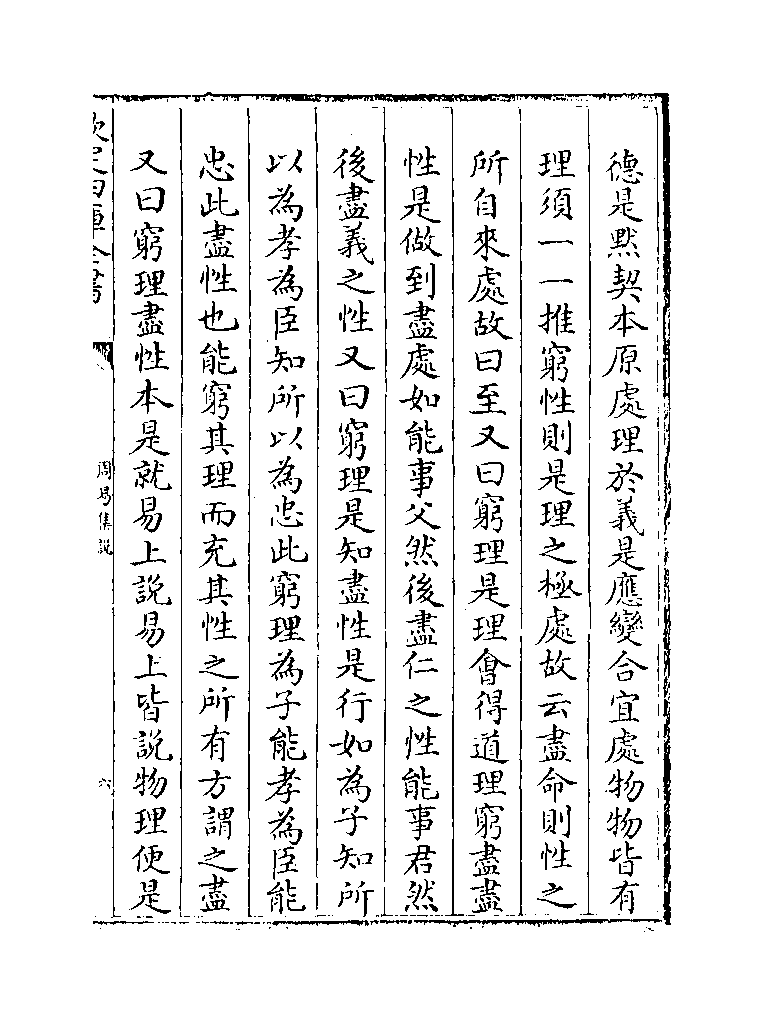 德是黙契本原處理於義是應變合宜處物物皆有
理須一一推窮性則是理之極處故云盡命則性之
所自來處故曰至又曰窮理是理會得道理窮盡盡
性是做到盡處如能事父然後盡仁之性能事君然
後盡義之性又曰窮理是知盡性是行如為子知所
以為孝為臣知所以為忠此窮理為子能孝為臣能
忠此盡性也能窮其理而充其性之所有方謂之盡
又曰窮理盡性本是就易上說易上皆說物理便是
欽定四庫全書
周易集說
六